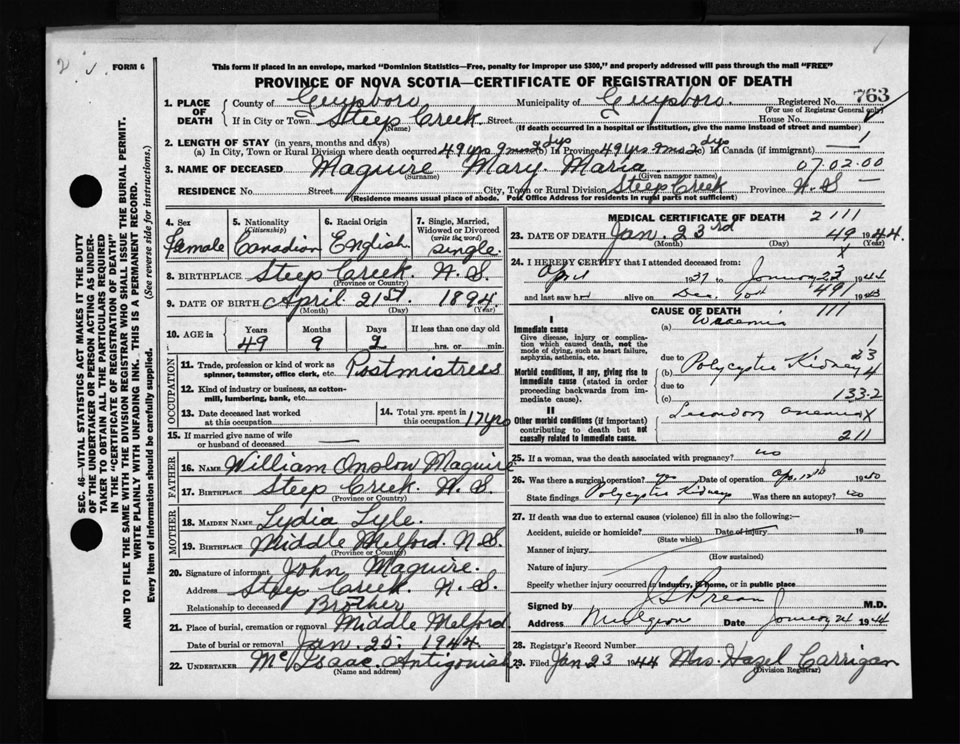 FORM 6
This form if placed in an envelope, marked "Dominion Statistics—Free, penalty for improper use $300," and properly addressed will pass through the mail "FREE"
PROVINCE OF NOVA SCOTIA—CERTIFICATE OF REGISTRATION OF DEATH
763
1. PLACE OF DEATH
County of Guysboro Municipality of Guysboro. Registered No.
(For use of Registrar General only)
If in City or Town Steep Creek Street House No.
(Name) (If death occurred in a hospital or institution, give the name instead of street and number)
2. LENGTH OF STAY (in years, months and days)
(a) In City, Town or Rural Division where death occurred 49 yrs 9 mos 2 dys (b) In Province 49 yrs 9 mos 2 dys (c) In Canada (if immigrant) —
3. NAME OF DECEASED Maguire Mary Maria 07.02.00
(Surname) (Given name or names)
RESIDENCE No. Street City, Town or Rural Division Steep Creek Province N.S —
(Residence means usual place of abode. Post Office Address for residents in rural parts not sufficient)
4. Sex
Female
5. Nationality
(Citizenship)
Canadian
6. Racial Origin
English
7. Single, Married, Widowed or Divorced
(write the word)
Single
8. BIRTHPLACE Steep Creek N.S.
(Province or Country)
9. DATE OF BIRTH April 21st. 1894.
(Month) (Day) (Year)
10. AGE in
Years Months Days If less than one day old
49 9 2 hrs. or min.
OCCUPATION
11. Trade, profession or kind of work as spinner, teamster, office clerk, etc. Postmistress
12. Kind of industry or business, as cotton-mill, lumbering, bank, etc.
13. Date deceased last worked at this occupation
14. Total yrs. spent in this occupation 17 yrs
15. If married give name of wife or husband of deceased —
FATHER
16. NAME William Onslow Maguire
17. BIRTHPLACE Steep Creek N.S.
(Province or Country)
MOTHER
18. MAIDEN NAME Lydia Lyle.
19. BIRTHPLACE Middle Melford. N.S.
(Province or Country)
20. Signature of informant John Maguire.
Address Steep Creek. N.S.
Relationship to deceased Brother
21. Place of burial, cremation or removal Middle Melford
Date of burial or removal Jan. 25. 1944.
22. UNDERTAKER McIsaac Antigonish
(Name and address)
MEDICAL CERTIFICATE OF DEATH 2111
23. DATE OF DEATH Jan. 23rd 49 1944.
(Month) (Day) (Year)
X
24. I HEREBY CERTIFY that I attended deceased from:
April 1937 to January 23 1944
and last saw h alive on Dec. 1943
491
CAUSE OF DEATH 111
I
Immediate cause
Give disease, injury or complication which caused death, not the mode of dying, such as heart failure, asphyxia, asthenia, etc.
(a) Uraemia
due to
Morbid conditions, if any, giving rise to immediate cause (stated in order proceeding backwards from immediate cause).
(b) Polycystic Kidney
due to
(c) 133-2
II
Other morbid conditions (if important) contributing to death but not causally related to immediate cause.
Secondary anemia X
211
25. If a woman, was the death associated with pregnancy? no
26. Was there a surgical operation? yes Date of operation Ap. 1940
State findings Polycystic Kidney Was there an autopsy? no
27. If death was due to external causes (violence) fill in also the following:—
Accident, suicide or homicide? Date of injury 19
(State which)
Manner of injury
(How sustained)
Nature of injury
Specify whether injury occurred in industry, in home, or in public place
Signed by M.D.
Address Mulgrave Date January 24 1944
28. Registrar's Record Number
29. Filed Jan 23 1944 Mrs. Hazel Carrigan
(Division Registrar)
SEC. 46—VITAL STATISTICS ACT MAKES IT THE DUTY
OF THE UNDERTAKER OR PERSON ACTING AS UNDER-
TAKER TO OBTAIN ALL THE PARTICULARS REQUIRED
IN THE "CERTIFICATE OF REGISTRATION OF DEATH"
AND TO FILE THE SAME WITH THE DIVISION REGISTRAR WHO SHALL ISSUE THE BURIAL PERMIT.
WRITE PLAINLY WITH UNFADING INK. THIS IS A PERMANENT RECORD.
Every item of information should be carefully supplied. (See reverse side for instructions.)